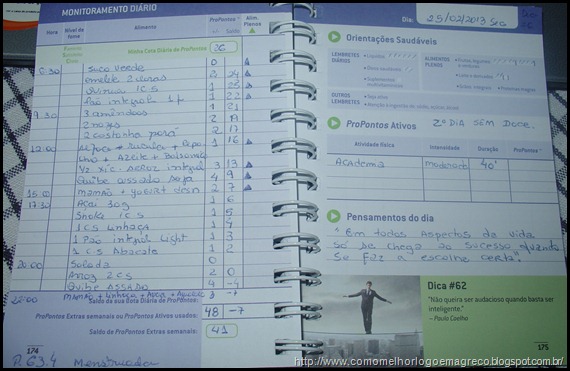 MONITORAMENTO DIÁRIO
Hora
Nível de fome
Alimento
ProPontos
+/-
Saldo
Alim. Plenos
Minha Cota Diária de ProPontos:
26
6:30 Suco verde 0
omelete 2 claras 2 24
Quinua 1 C S 1 25
Pão integral 1 f 1 22
9:30 3 amêndoas 1 21
2 nozes 2 19
2 castanha pará 2 17
12:00 Alface + Rucula + Repo 1 16
Uho + Azeite + Balsamico
1/2 xic. arroz integral 3 13
Quibe assado soja 4 9
15:00 mamão + yogurt desn 2 7
17:30 Acai 30g 1 6
Shake 1 C S 1 5
1 CS Linhaça 1 4
1 Pão integral light 1 3
1 C S Abacate 1 2
20:00 Salada 0
Arroz 2 C S 2 0
Quibe ASSADO 4 -4
22:00 mamão + Linhaça + Aveia + 3 -7
Saldo da sua Cota Diária de ProPontos:
ProPontos Extras semanais ou ProPontos Ativos usados:
48 -7
Saldo de ProPontos Extras semanais:
41
174
P. 63.4 Menstruada
Dia: 25/02/2013 SEG
Orientações Saudáveis
LEMBRETES DIÁRIOS
Líquidos
Óleos saudáveis
Suplemento multivitamínico
ALIMENTOS PLENOS
Frutas, legumes e verduras
Leite e derivados
Grãos integrais
Proteínas magras
OUTROS LEMBRETES
Seja ativo
Atenção à ingestão de sódio, açúcar, álcool
ProPontos Ativos 2º DIA SEM DOCE.
Atividade física
Intensidade
Duração
ProPontos
Academia moderado 40'
Pensamentos do dia
"Em todos aspectos da vida
só se chega ao sucesso quando
se faz a escolha certa"
Dica #62
"Não queira ser audacioso quando basta ser
inteligente."
– Paulo Coelho
175
http://www.comomelhorlogoemagreco.blogspot.com.br/